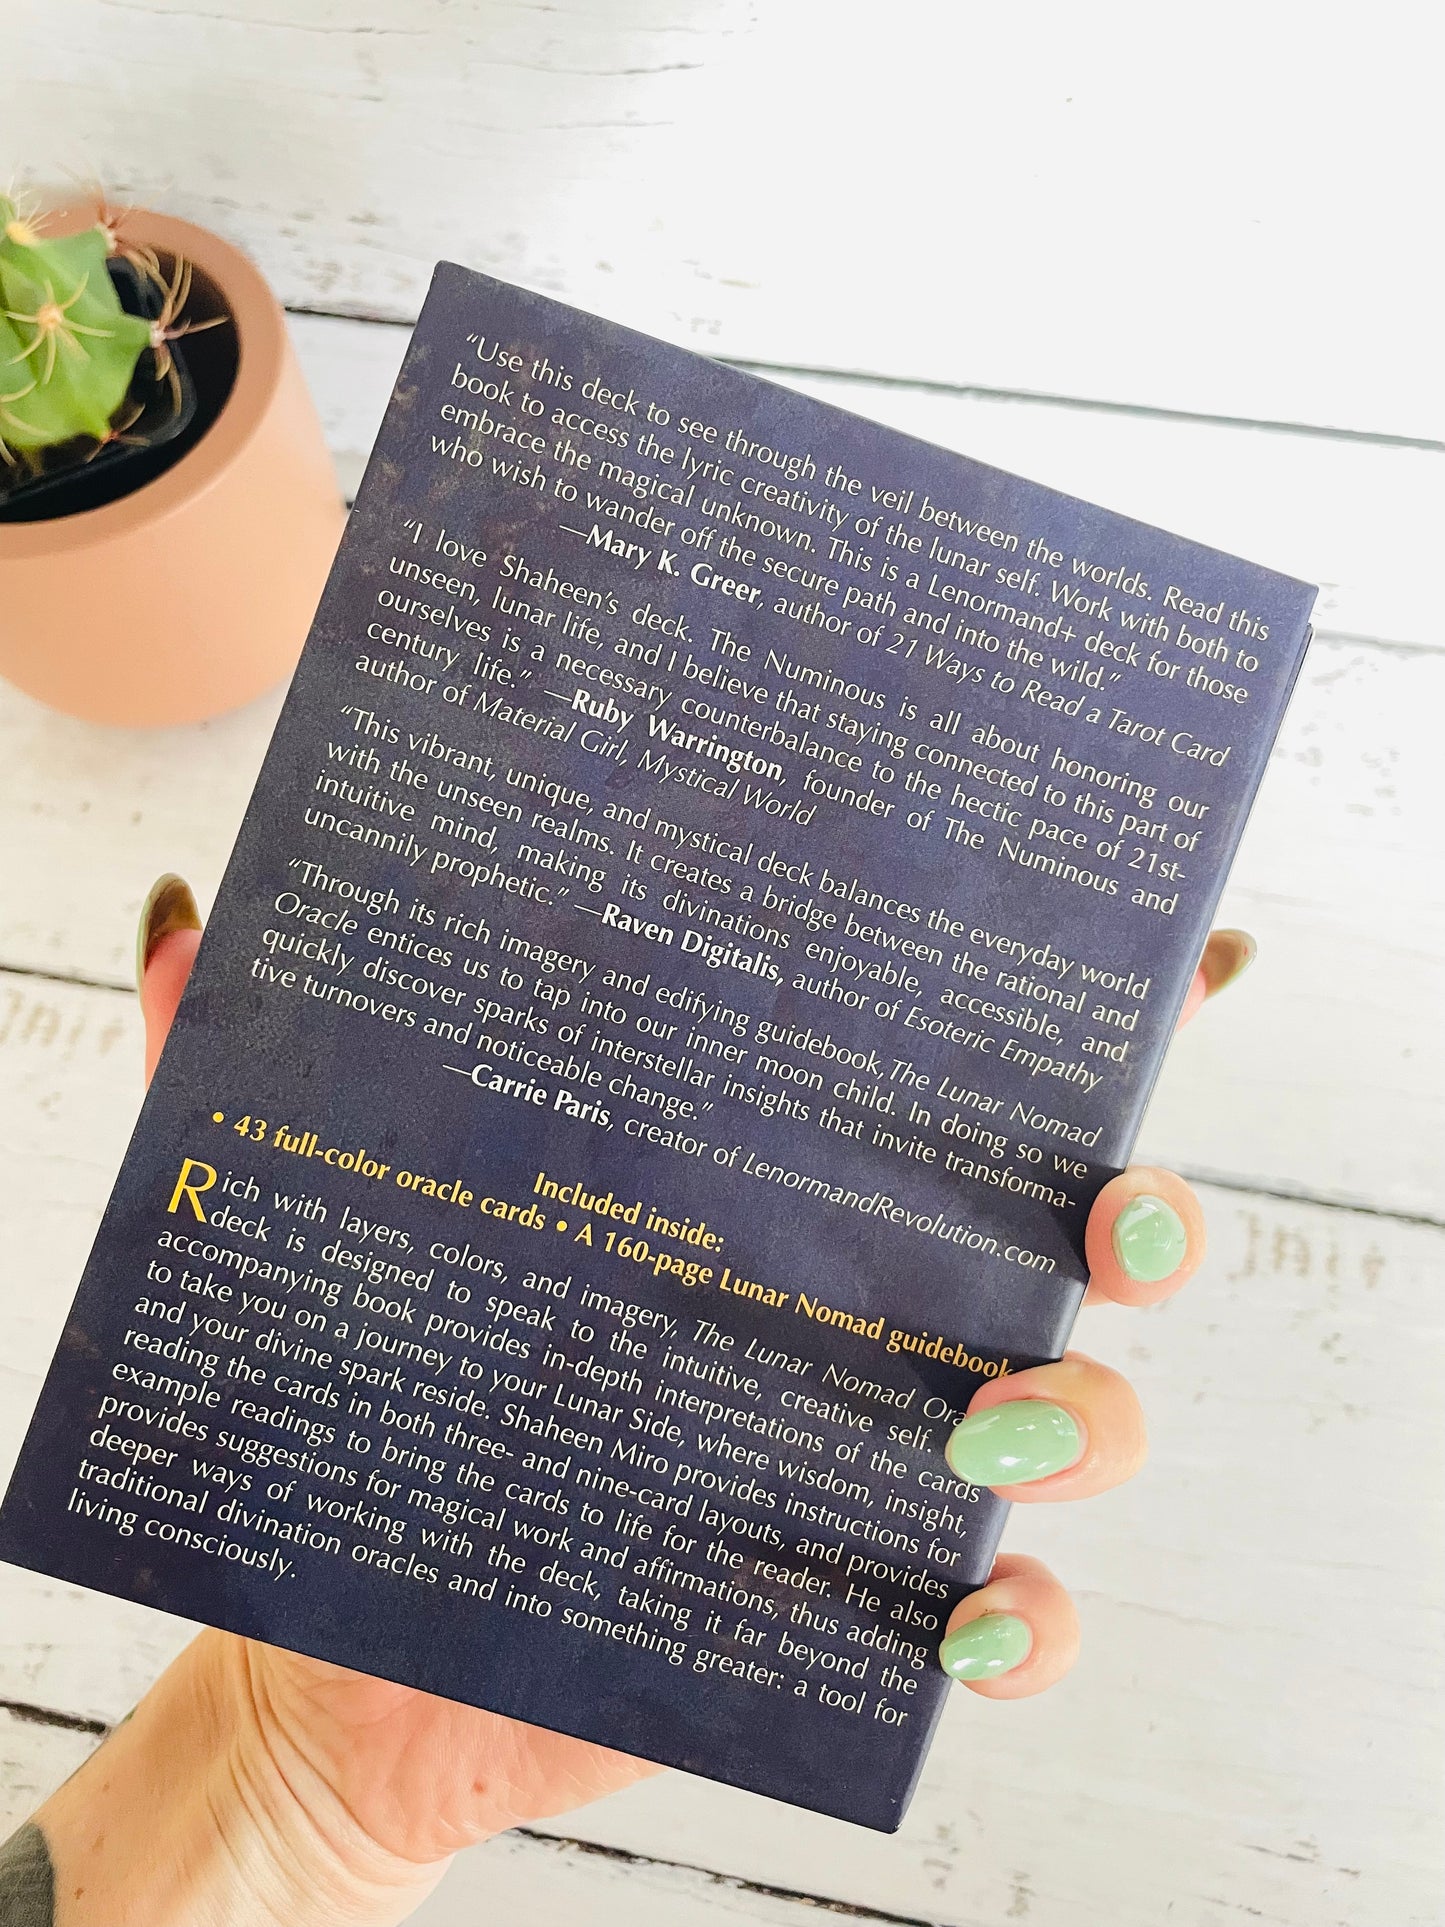 “Use this deck to see through the veil between the worlds. Read this
book to access the lyric creativity of the lunar self. Work with both to
embrace the magical unknown. This is a Lenormand+ deck for those
who wish to wander off the secure path and into the wild.”
—Mary K. Greer, author of 21 Ways to Read a Tarot Card
“I love Shaheen’s deck. The Numinous is all about honoring our
unseen, lunar life, and I believe that staying connected to this part of
ourselves is a necessary counterbalance to the hectic pace of 21st-
century life.” —Ruby Warrington, founder of The Numinous and
author of Material Girl, Mystical World
“This vibrant, unique, and mystical deck balances the everyday world
with the unseen realms. It creates a bridge between the rational and
intuitive mind, making its divinations enjoyable, accessible, and
uncannily prophetic.” —Raven Digitalis, author of Esoteric Empathy
“Through its rich imagery and edifying guidebook, The Lunar Nomad
Oracle entices us to tap into our inner moon child. In doing so we
quickly discover sparks of interstellar insights that invite transforma-
tive turnovers and noticeable change.”
—Carrie Paris, creator of LenormandRevolution.com
Included inside:
• 43 full-color oracle cards • A 160-page Lunar Nomad guidebook
Rich with layers, colors, and imagery, The Lunar Nomad
deck is designed to speak to the intuitive, creative self.
accompanying book provides in-depth interpretations of the cards
to take you on a journey to your Lunar Side, where wisdom, insight,
and your divine spark reside. Shaheen Miro provides instructions for
reading the cards in both three- and nine-card layouts, and provides
example readings to bring the cards to life for the reader. He also
provides suggestions for magical work and affirmations, thus adding
deeper ways of working with the deck, taking it far beyond the
traditional divination oracles and into something greater: a tool for
living consciously.